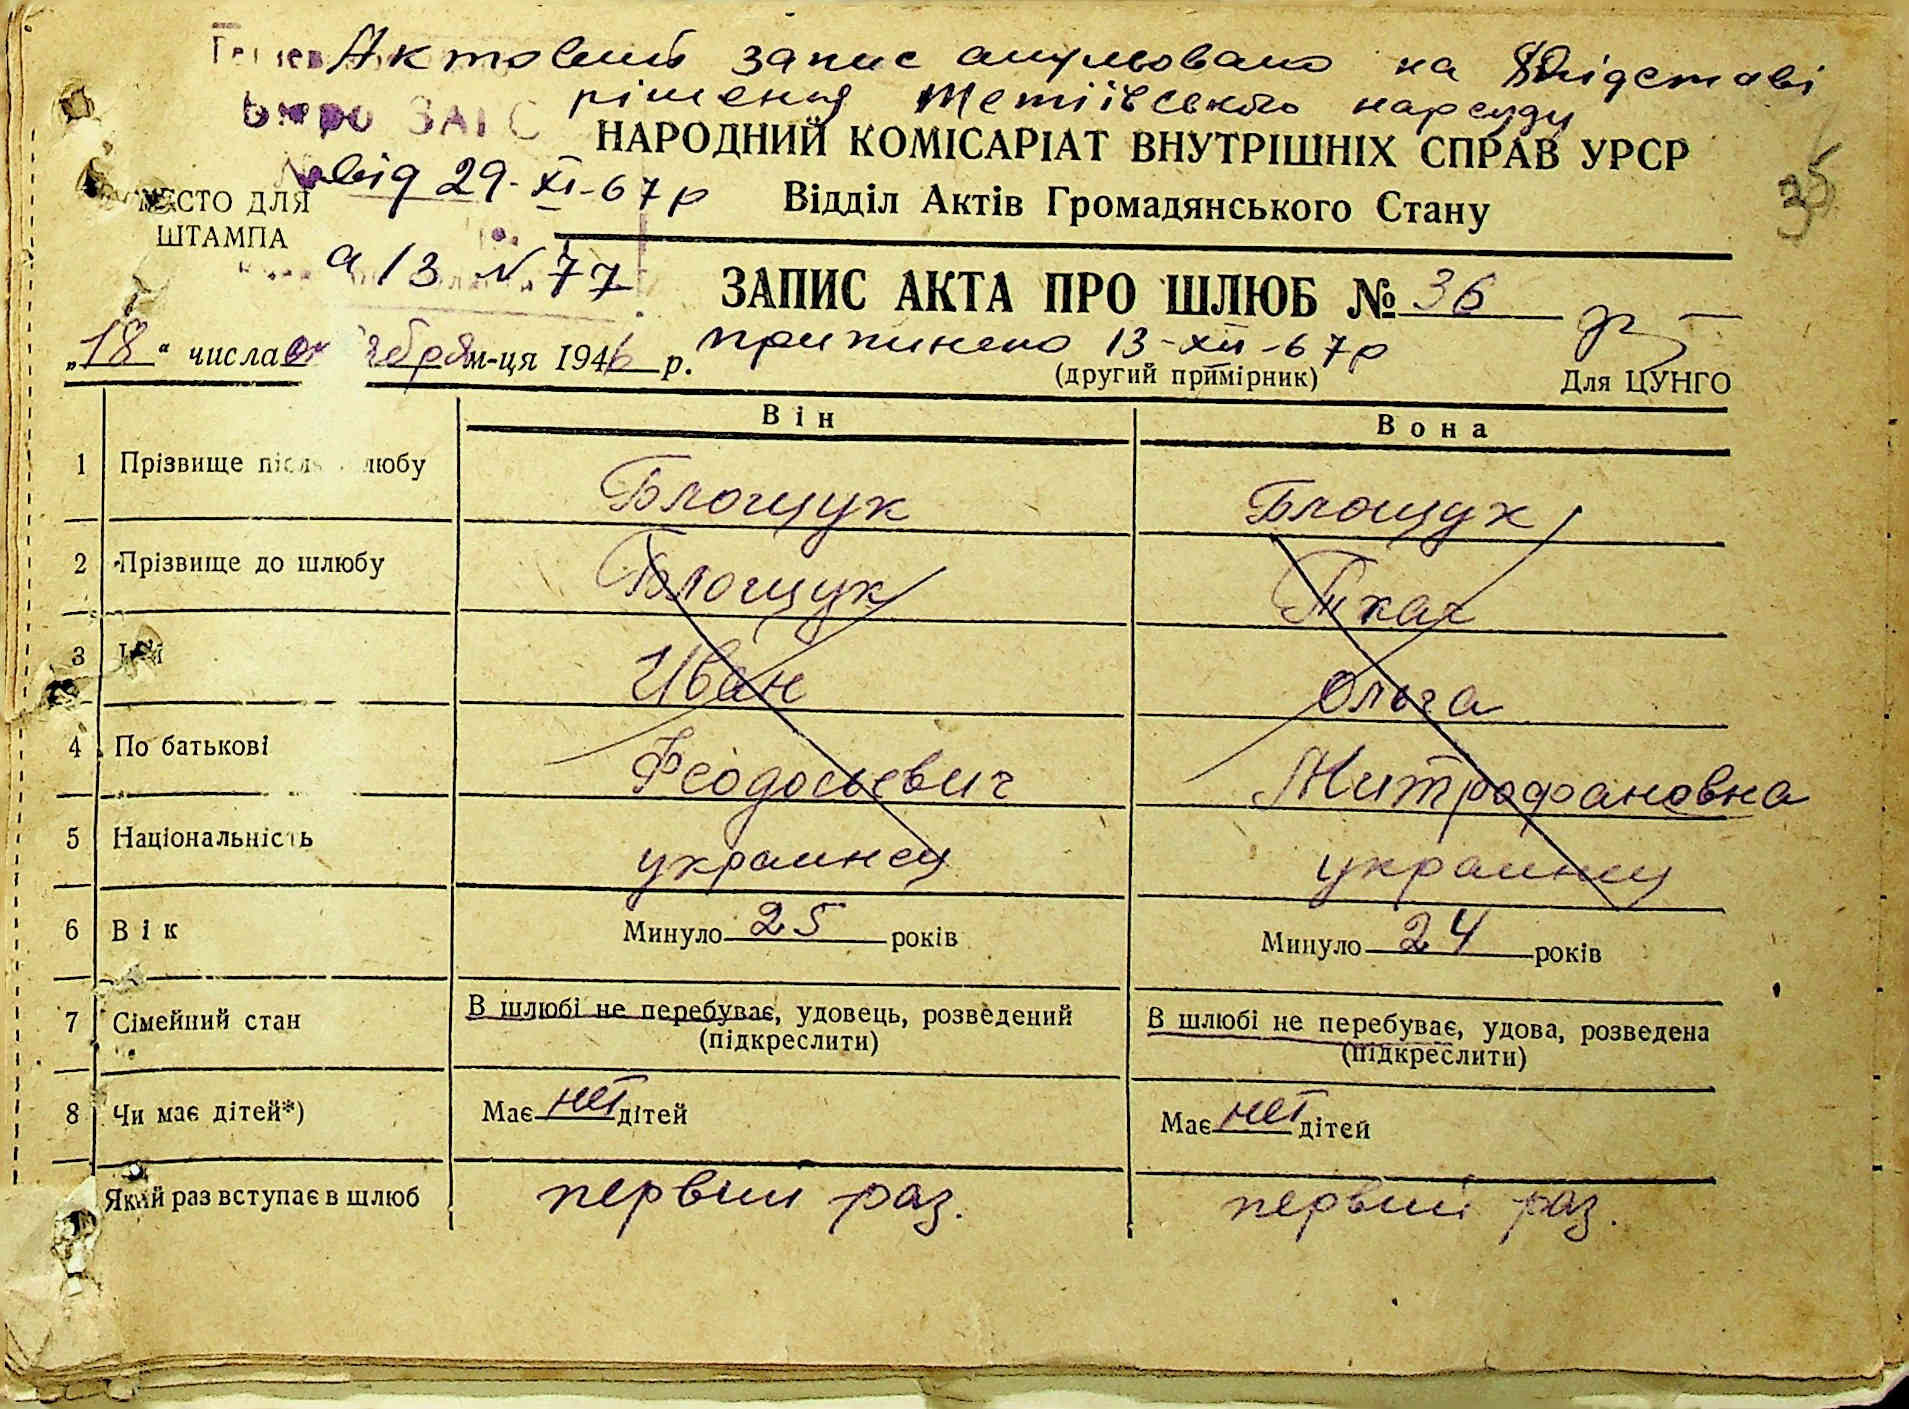 Актовий запис анульовано на підставі
рішення Тетіївського нарсуду
БЮРО ЗАГС
НАРОДНИЙ КОМІСАРІАТ ВНУТРІШНІХ СПРАВ УРСР
від 29-XI-67р
Відділ Актів Громадянського Стану
МЕСТО ДЛЯ
ШТАМПА
а/з № 77
ЗАПИС АКТА ПРО ШЛЮБ № 36
припинено 13-XII-67р
„18" числа м-ця 1946 р.
(другий примірник)
Для ЦУНГО
Він Вона
1 Прізвище після шлюбу Блощук Блощук
2 Прізвище до шлюбу Блощук Ткач
3 Ім'я Иван Ольга
4 По батькові Феодосьевич Митрофановна
5 Національність украинец украинец
6 Вік Минуло 25 років Минуло 24 років
7 Сімейний стан В шлюбі не перебуває, удовець, розведений В шлюбі не перебуває, удова, розведена
(підкреслити) (підкреслити)
8 Чи має дітей*) Має нет дітей Має нет дітей
Який раз вступає в шлюб первый раз. первый раз.